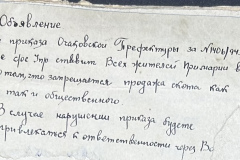 Объявление
приказа Очаковской Префектуры за №1401/94
ставит Всех жителей Примарии в
том, что запрещается продажа скота как
так и общественного.
В случае нарушении приказа будете
привлекаться к ответственности через Во